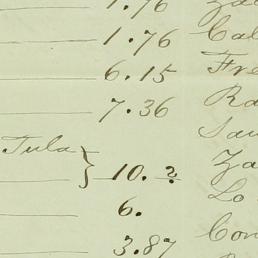 1.76
1.76 Cal
6.15 Fre
7.36 Ra
Sau
Tula } 10.2 Za
6. Lo
3.87 Con